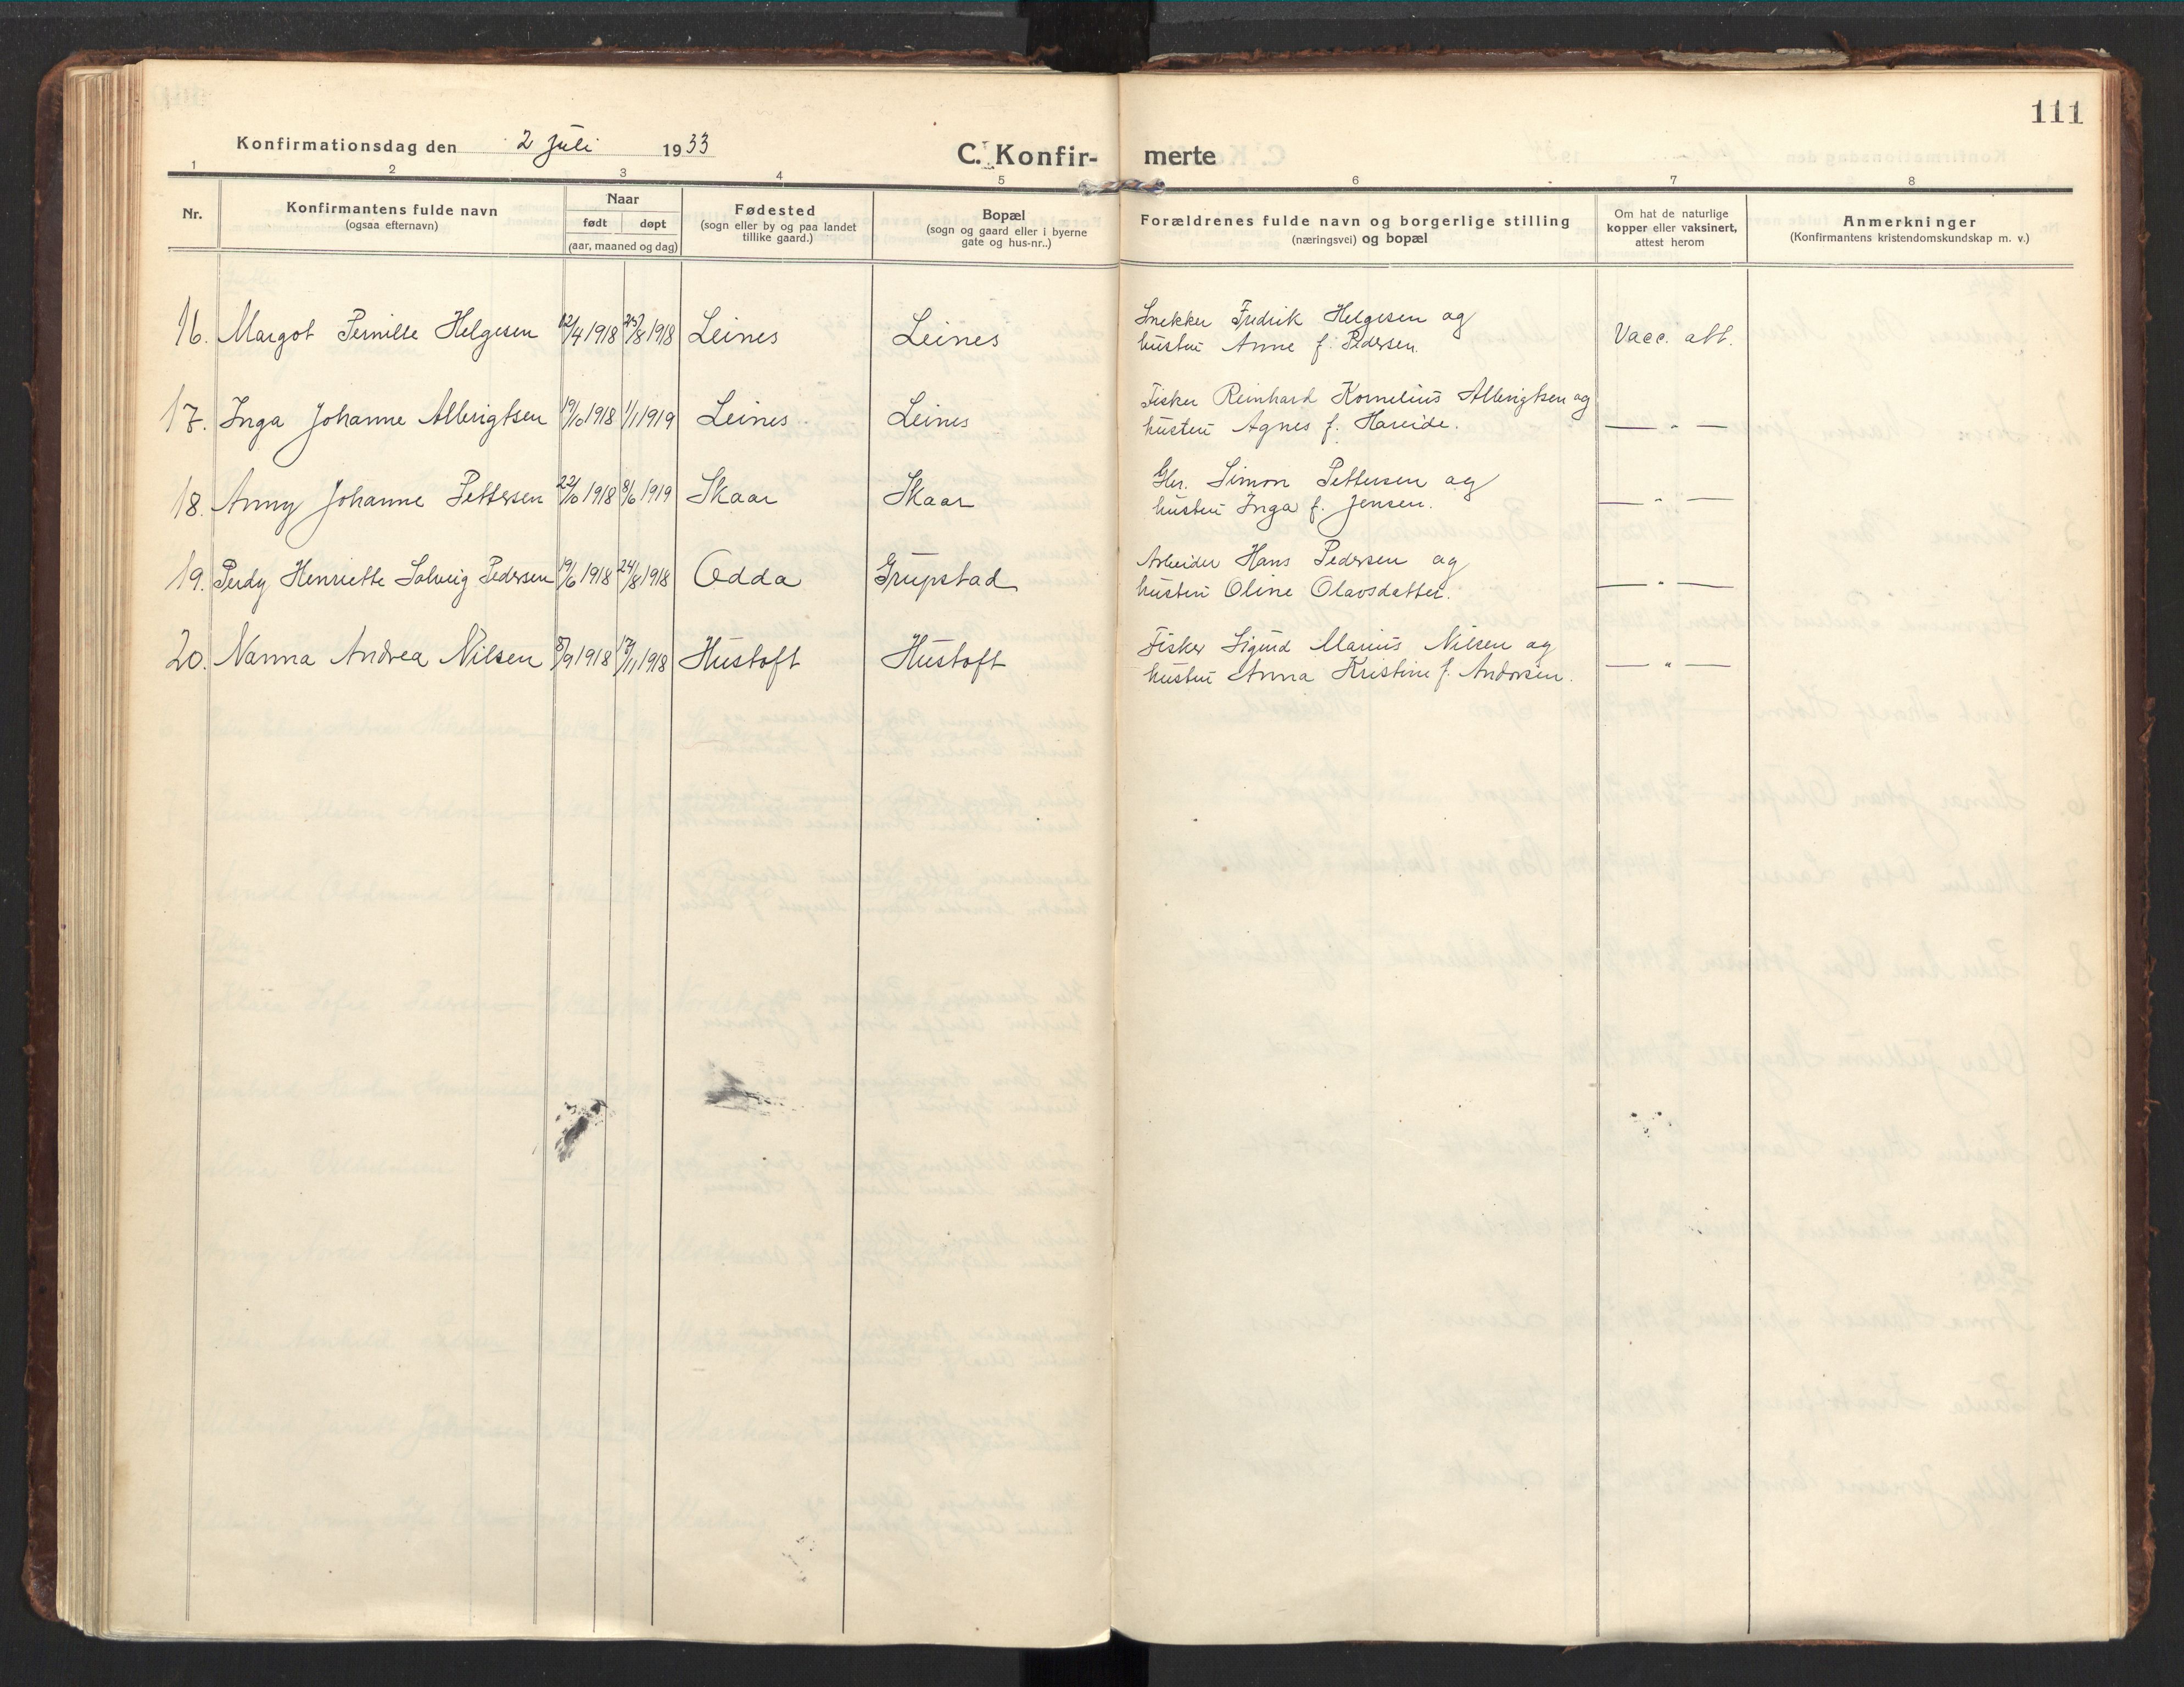 111
Konfirmationsdag den 2 Juli 1933
C. Konfir- merte
1 2 3 4 5 6 7 8
Nr.
Konfirmantens fulde navn
(ogsaa efternavn)
Naar
født døpt
(aar, maaned og dag)
Fødested
(sogn eller by og paa landet
tillike gaard.)
Bopæl
(sogn og gaard eller i byerne
gate og hus-nr..)
Forældrenes fulde navn og borgerlige stilling
(næringsvei) og bopæl
Om hat de naturlige
kopper eller vaksinert,
attest herom
Anmerkninger
(Konfirmantens kristendomskundskap m. v.)
16. Margot Pernille Helgesen 12/4 1918 25/8 1918 Leines Leines
Snekker Fredrik Helgesen og
hustru Anne f. Pedersen.
Vacc. att.
17. Inga Johanne Albrigtsen 19/10 1918 1/1 1919 Leines Leines
Fisker Reinhard Kornelius Albrigtsen og
hustru Agnes f. Hareide.
— " —
18. Anny Johanne Pettersen 22/10 1918 8/6 1919 Skaar Skaar
Gbr. Simon Pettersen og
hustru Inga f. Jensen.
— " —
19. Perdy Henriette Solveig Pedersen 19/6 1918 24/8 1918 Odda Grupstad
Arbeider Hans Pedersen og
hustru Oline Olavsdatter.
— " —
20. Nanna Andrea Nilsen 8/9 1918 17/11 1918 Hustoft Hustoft
Fisker Sigurd Marius Nilsen og
hustru Anna Kristine f. Andorsen.
— " —